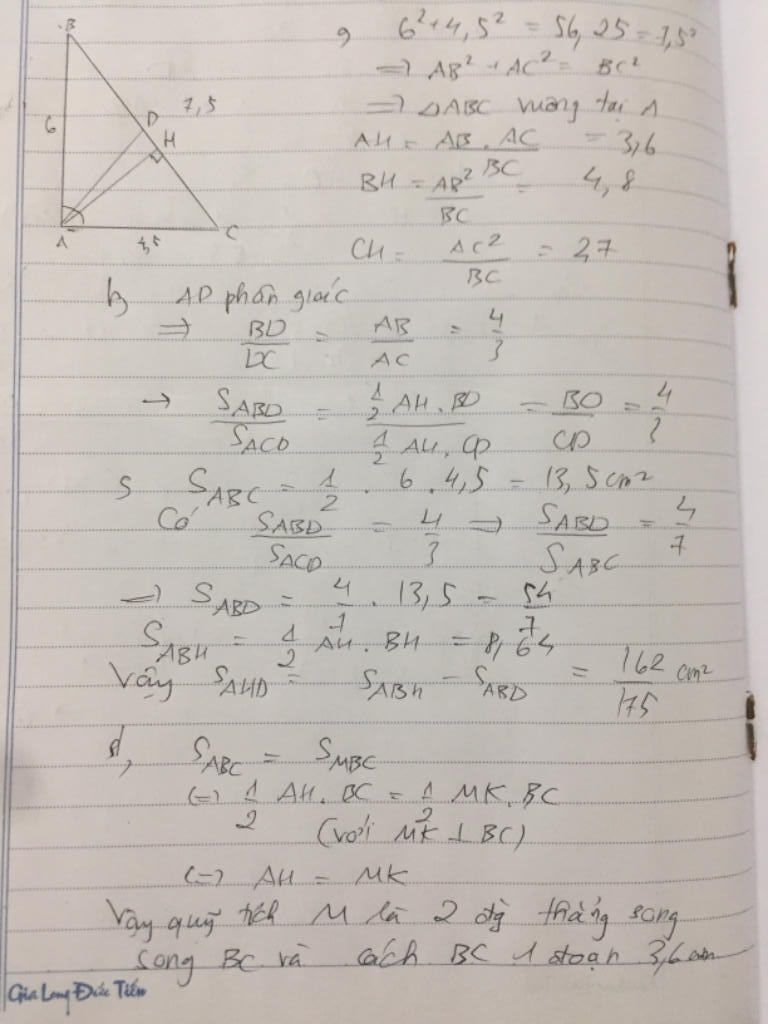 B
6
7,5
D
H
A
4,5
C
a, 6² + 4,5² = 56,25 = 7,5²
=> AB² + AC² = BC²
=> △ABC vuông tại A
AH = AB . AC / BC = 3,6
BH = AB² / BC = 4,8
CH = AC² / BC = 2,7
b, AD phân giác
=> BD / DC = AB / AC = 4/3
-> S_ABD / S_ACD = 1/2 AH . BD / 1/2 AH . CD = BD / CD = 4/3
S S_ABC = 1/2 . 6 . 4,5 = 13,5 cm²
Có S_ABD / S_ACD = 4/3 => S_ABD / S_ABC = 4/7
=> S_ABD = 4/7 . 13,5 = 54/7
S_ABH = 1/2 AH . BH = 8,64
Vậy S_AHD = S_ABH - S_ABD = 162/175 cm²
d, S_ABC = S_MBC
(=) 1/2 AH . BC = 1/2 MK . BC
(với MK ⊥ BC)
(=) AH = MK
Vậy quỹ tích M là 2 đg thẳng song
song BC và cách BC 1 đoạn 3,6 cm
Gia Long Đức Tiến